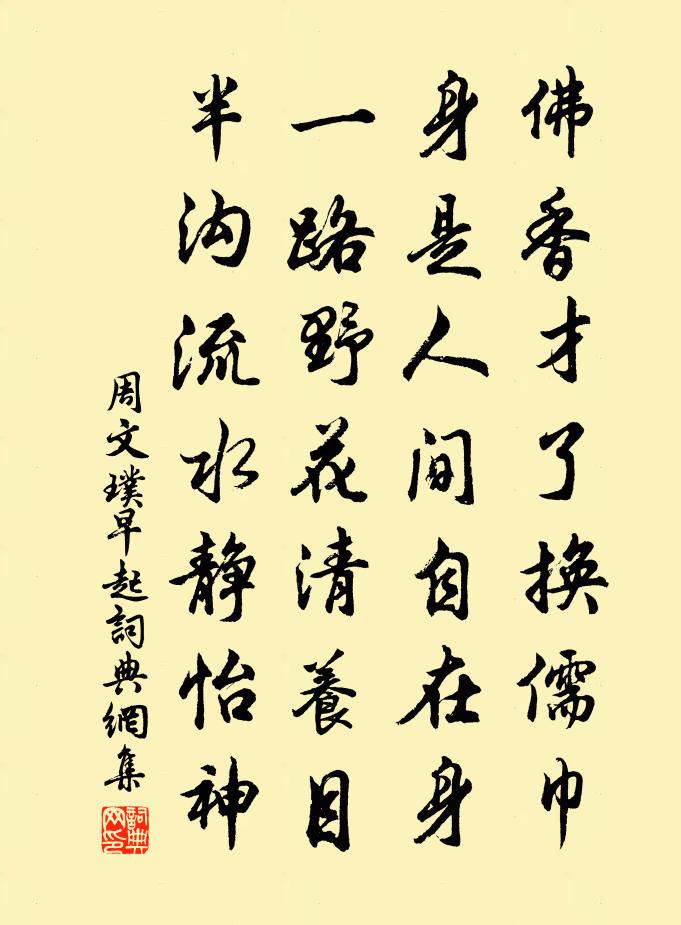 佛香才了換儒巾
身是人间自在身
一路野花清養目
半沟流水静怡神
周文璞早起詞典網集
詞典网印